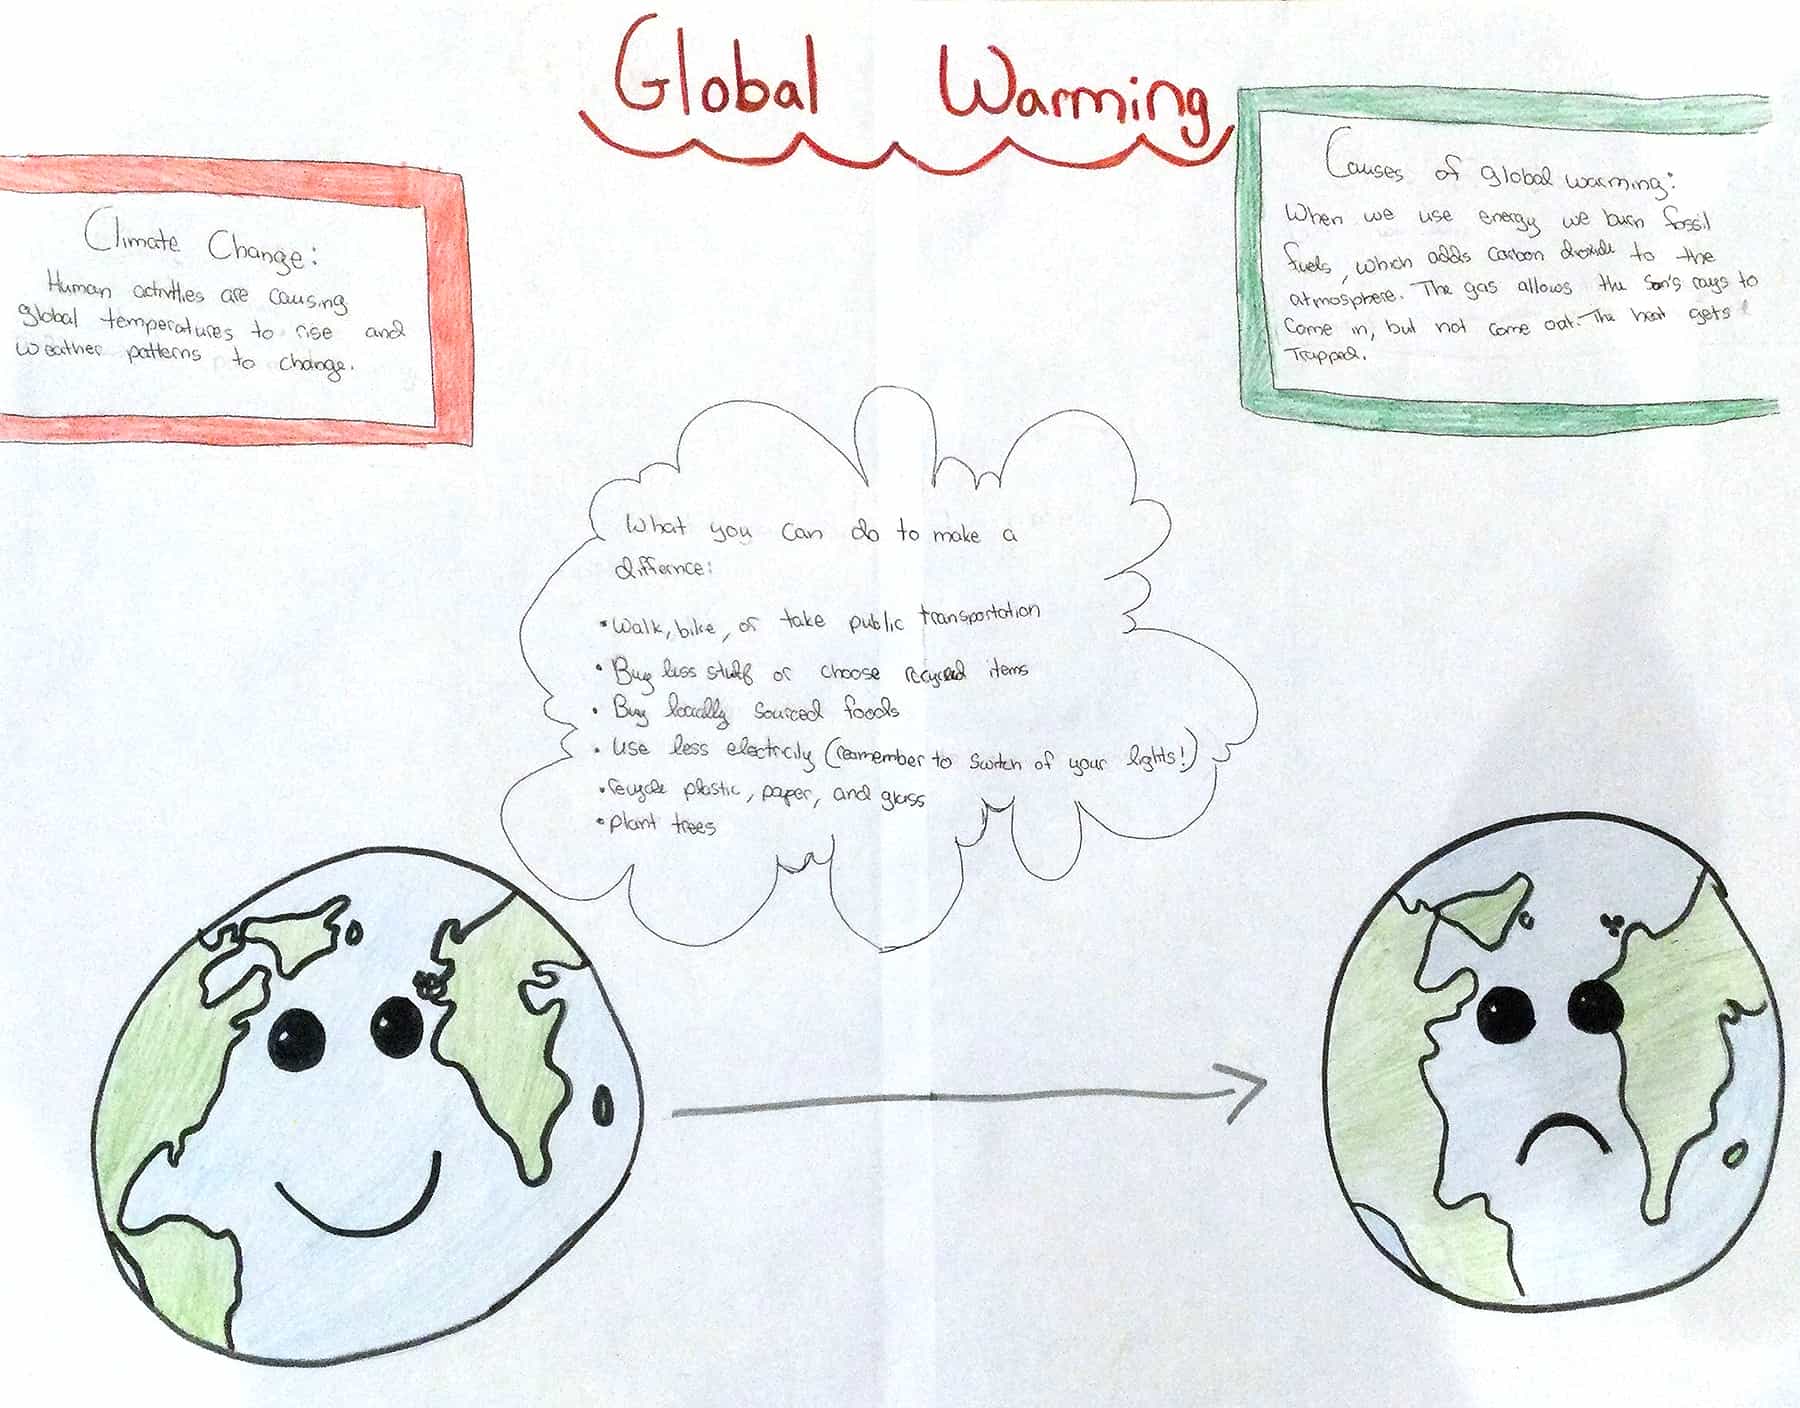 Global Warming
Climate Change:
Human activities are causing
global temperatures to rise and
weather patterns to change.
Causes of global warming:
When we use energy we burn fossil
fuels, which adds carbon dioxide to the
atmosphere. The gas allows the Son's rays to
come in, but not come out. The heat gets
Trapped.
What you can do to make a
differnce:
• Walk, bike, or take public transportation
• Buy less stuff or choose recycled items
• Buy locally sourced foods
• use less electricity (reamember to switch of your lights!)
• recycle plastic, paper, and glass
• plant trees